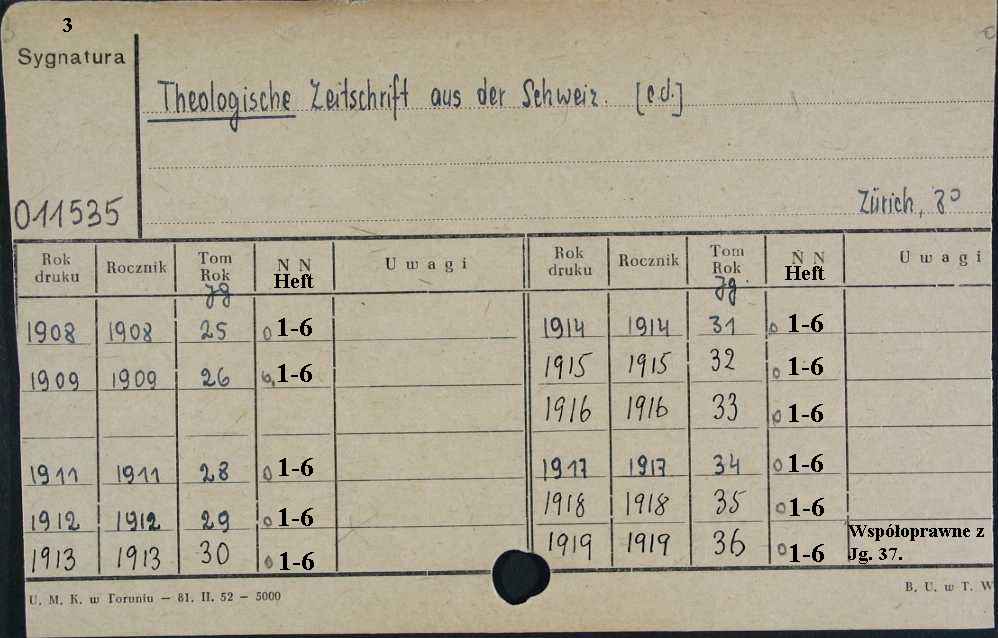 3
Sygnatura
Theologische Zeitschrift aus der Schweiz. [c.d.]
011535
Zürich, 8°
Rok druku Rocznik Tom Rok Jg N N Heft Uwagi Rok druku Rocznik Tom Rok Jg. N N Heft Uwagi
1908 1908 25 0 1-6 1914 1914 31 0 1-6
1909 1909 26 1-6 1915 1915 32 0 1-6
1916 1916 33 0 1-6
1911 1911 28 0 1-6 1917 1917 34 0 1-6
1912 1912 29 0 1-6 1918 1918 35 0 1-6
1913 1913 30 0 1-6 1919 1919 36 0 1-6 Współoprawne z Jg. 37.
U. M. K. w Toruniu — 81. II. 52 — 5000
B. U. w T. W